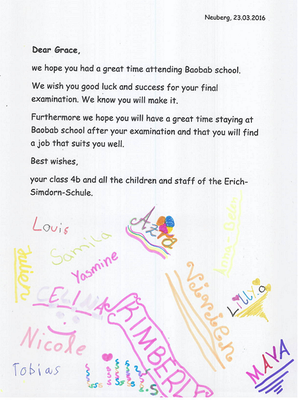 Neuberg, 23.03.2016
Dear Grace,
we hope you had a great time attending Baobab school.
We wish you good luck and success for your final
examination. We know you will make it.
Furthermore we hope you will have a great time staying at
Baobab school after your examination and that you will find
a job that suits you well.
Best wishes,
your class 4b and all the children and staff of the Erich-
Simdorn-Schule.
Louis
Azra
Samila
Yasmine
Julien
CELINA
KIMBERLY
Lilly.O
Nicole
Tobias
Lilli.S
MAYA